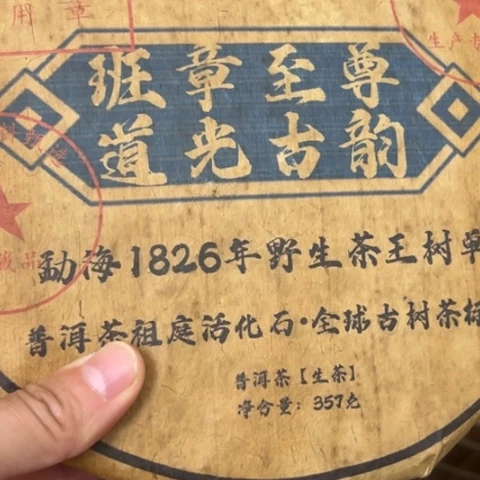 用章
生产
班章至尊
道光古韵
勐海1826年野生茶王树单
普洱茶祖庭活化石·全球古树茶标
普洱茶【生茶】
净含量：357克